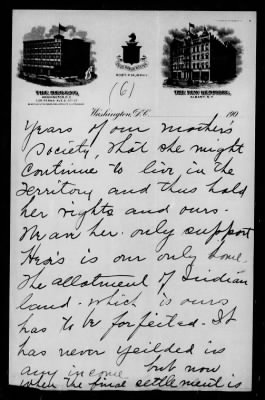 THE REGENT,
WASHINGTON, D.C.
THE NEW KENMORE,
ALBANY, N.Y.
(6)
Washington, D.C. 190
Years of our mother's
Society, that she might
Continue to live in the
Territory and thus hold
her rights and ours.
We an her only support
Hers is our only home
The allotment of Indian
land - which is ours
has to be forfeited. It
has never yeilded us
any income but now
when the final settlement is